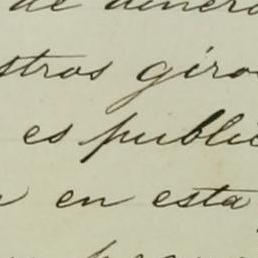 de dinero
stros giro
es public
en esta